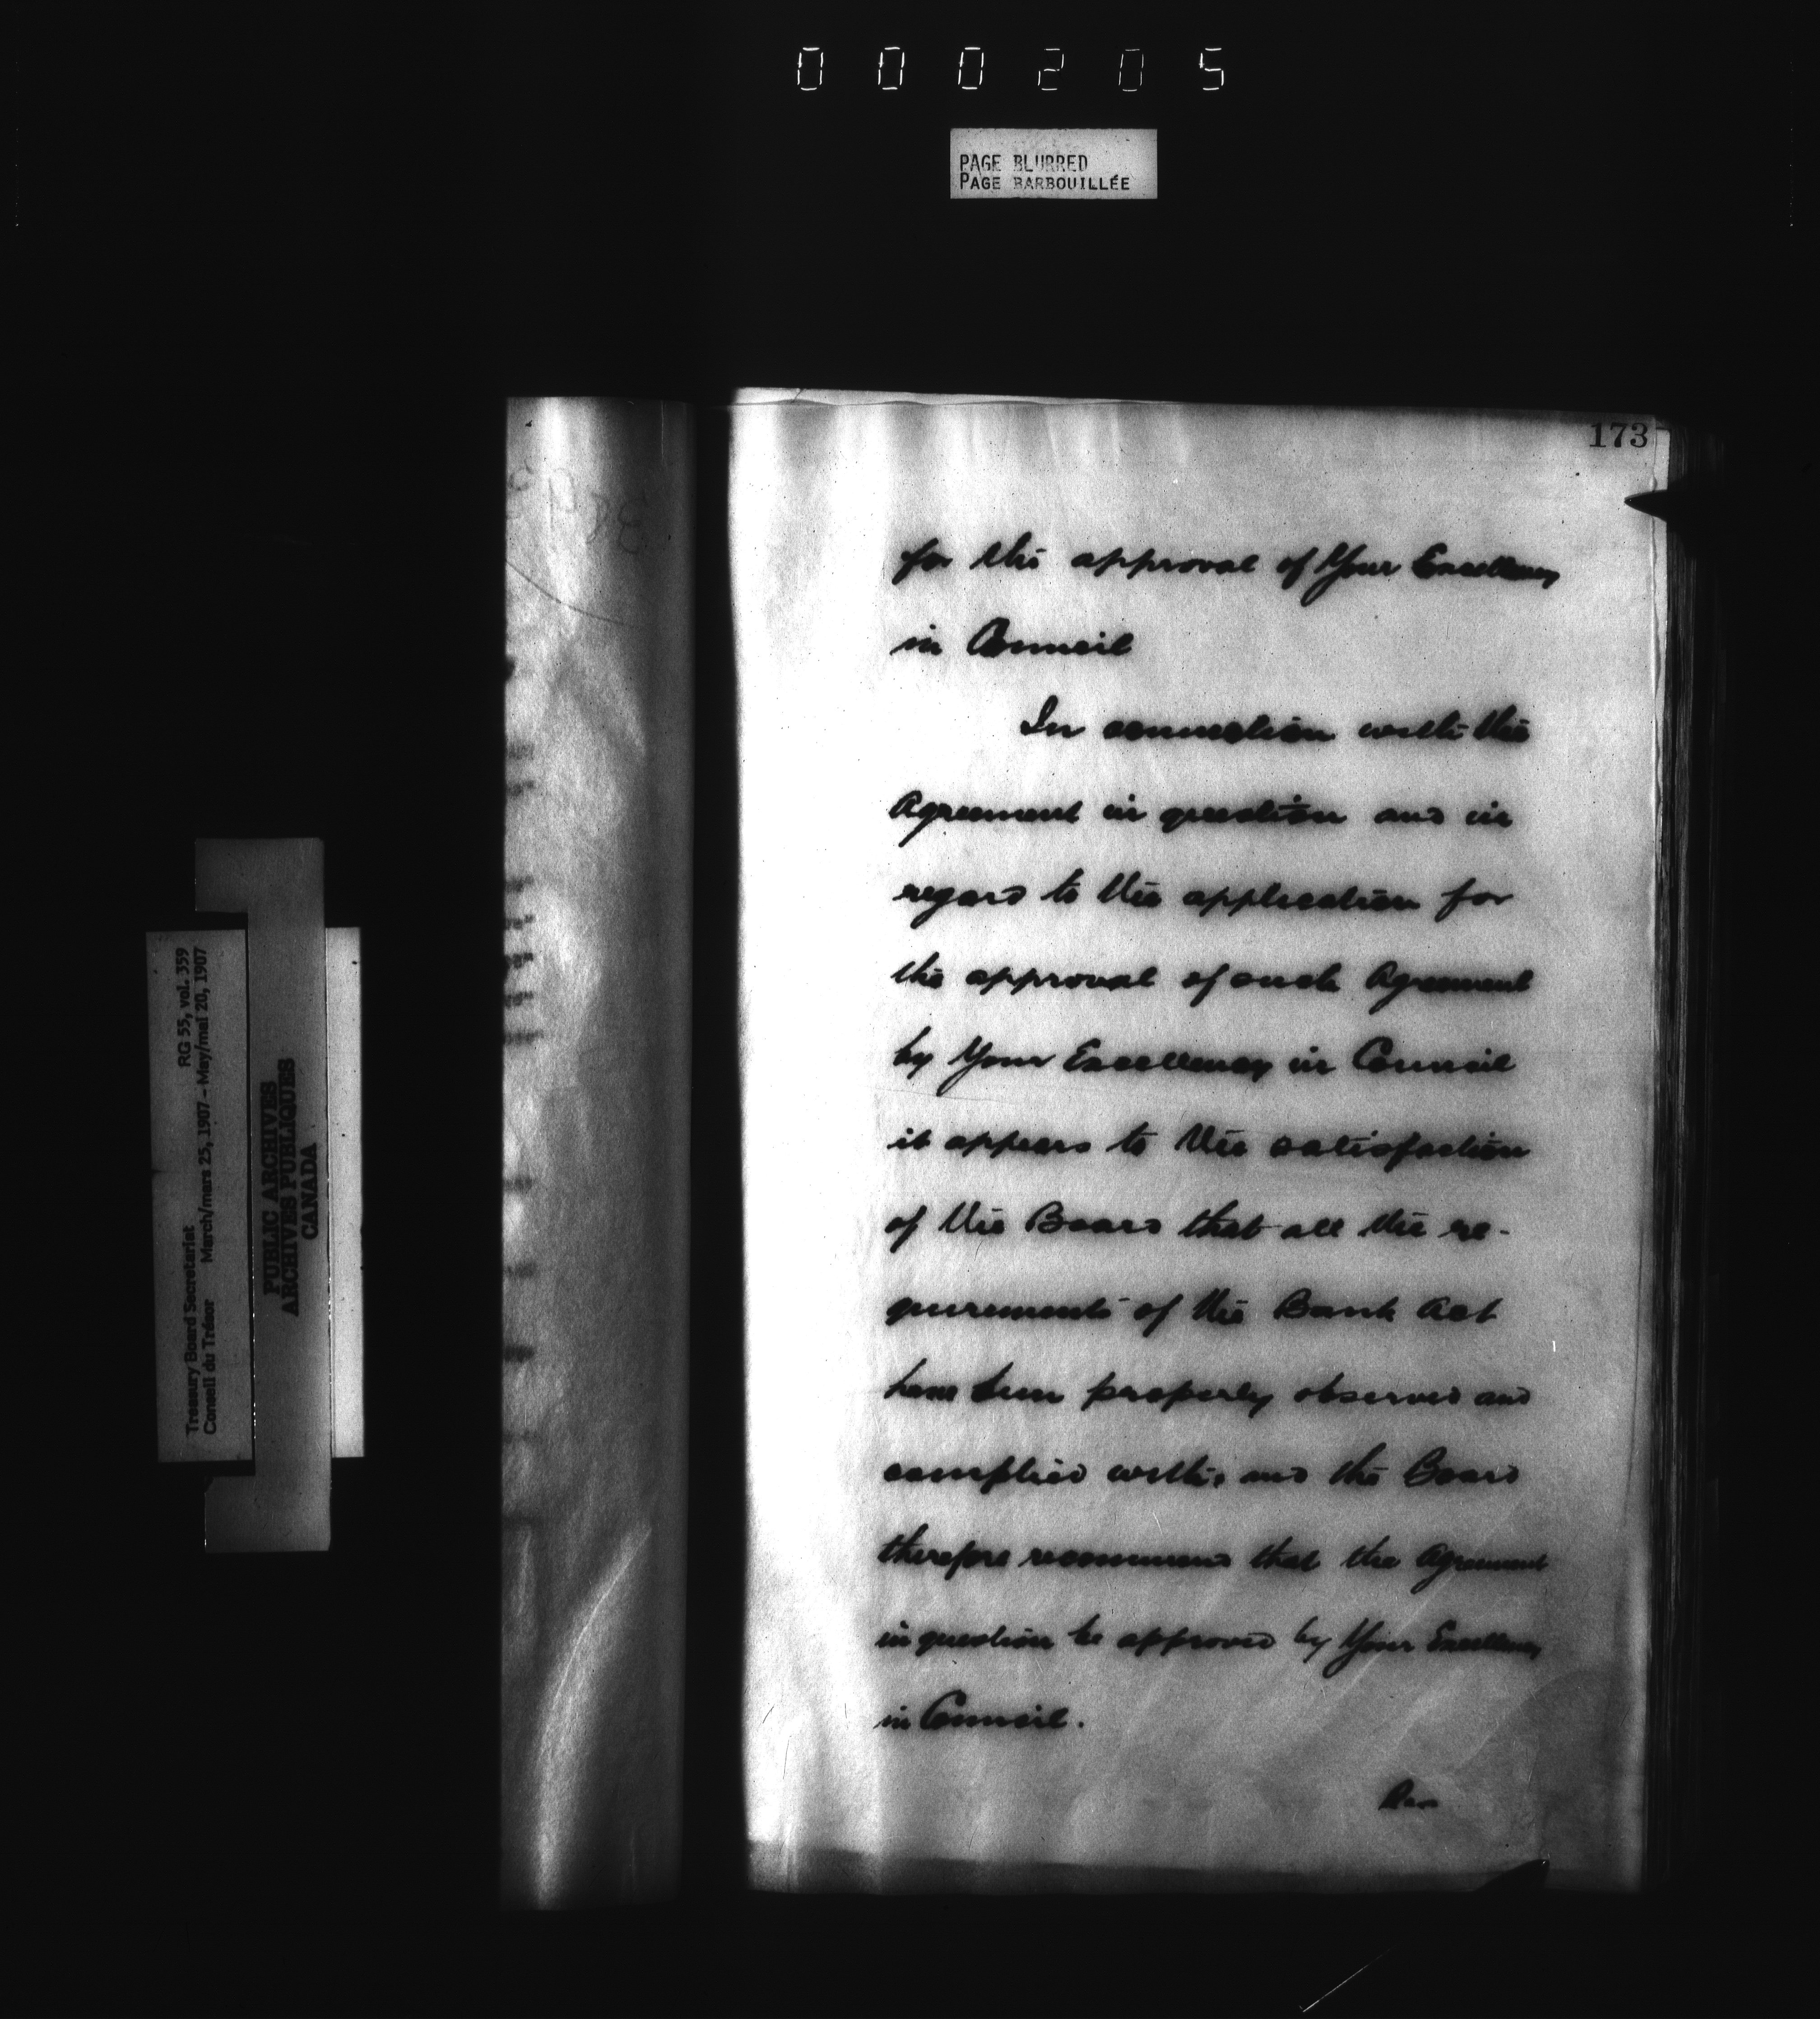 000205
PAGE BLURRED
PAGE BARBOUILLÉE
173
for the approval of Your Excellency
in Council
In connection with the
Agreement in question and in
regard to the application for
the approval of such Agreement
by Your Excellency in Council
it appears to the satisfaction
of the Board that all the re-
quirements of the Bank Act
have been properly observed and
complied with, and the Board
therefore recommend that the Agreement
in question be approved by Your Excellency
in Council.
Treasury Board Secretariat RG 55, vol. 359
Conseil du Trésor March/mars 25, 1907 - May/mai 20, 1907
PUBLIC ARCHIVES
ARCHIVES PUBLIQUES
CANADA